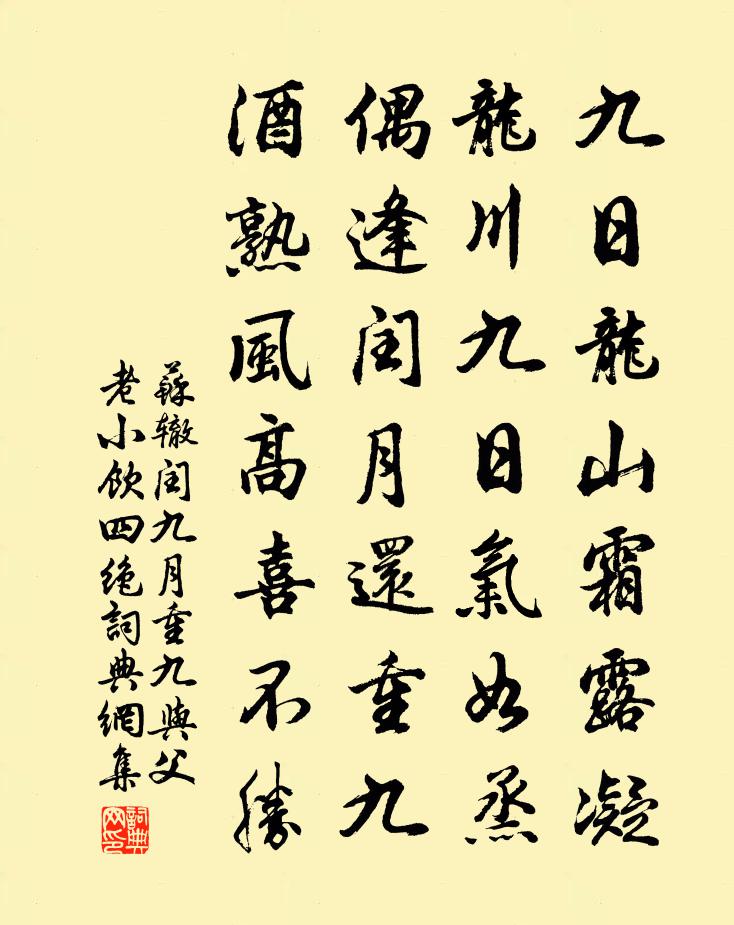 九日龍山霜露凝
龍川九日氣如蒸
偶逢閏月還重九
酒熟風高喜不勝
蘇辙閏九月重九與父
老小飲四絕詞典網集
詞典
网印